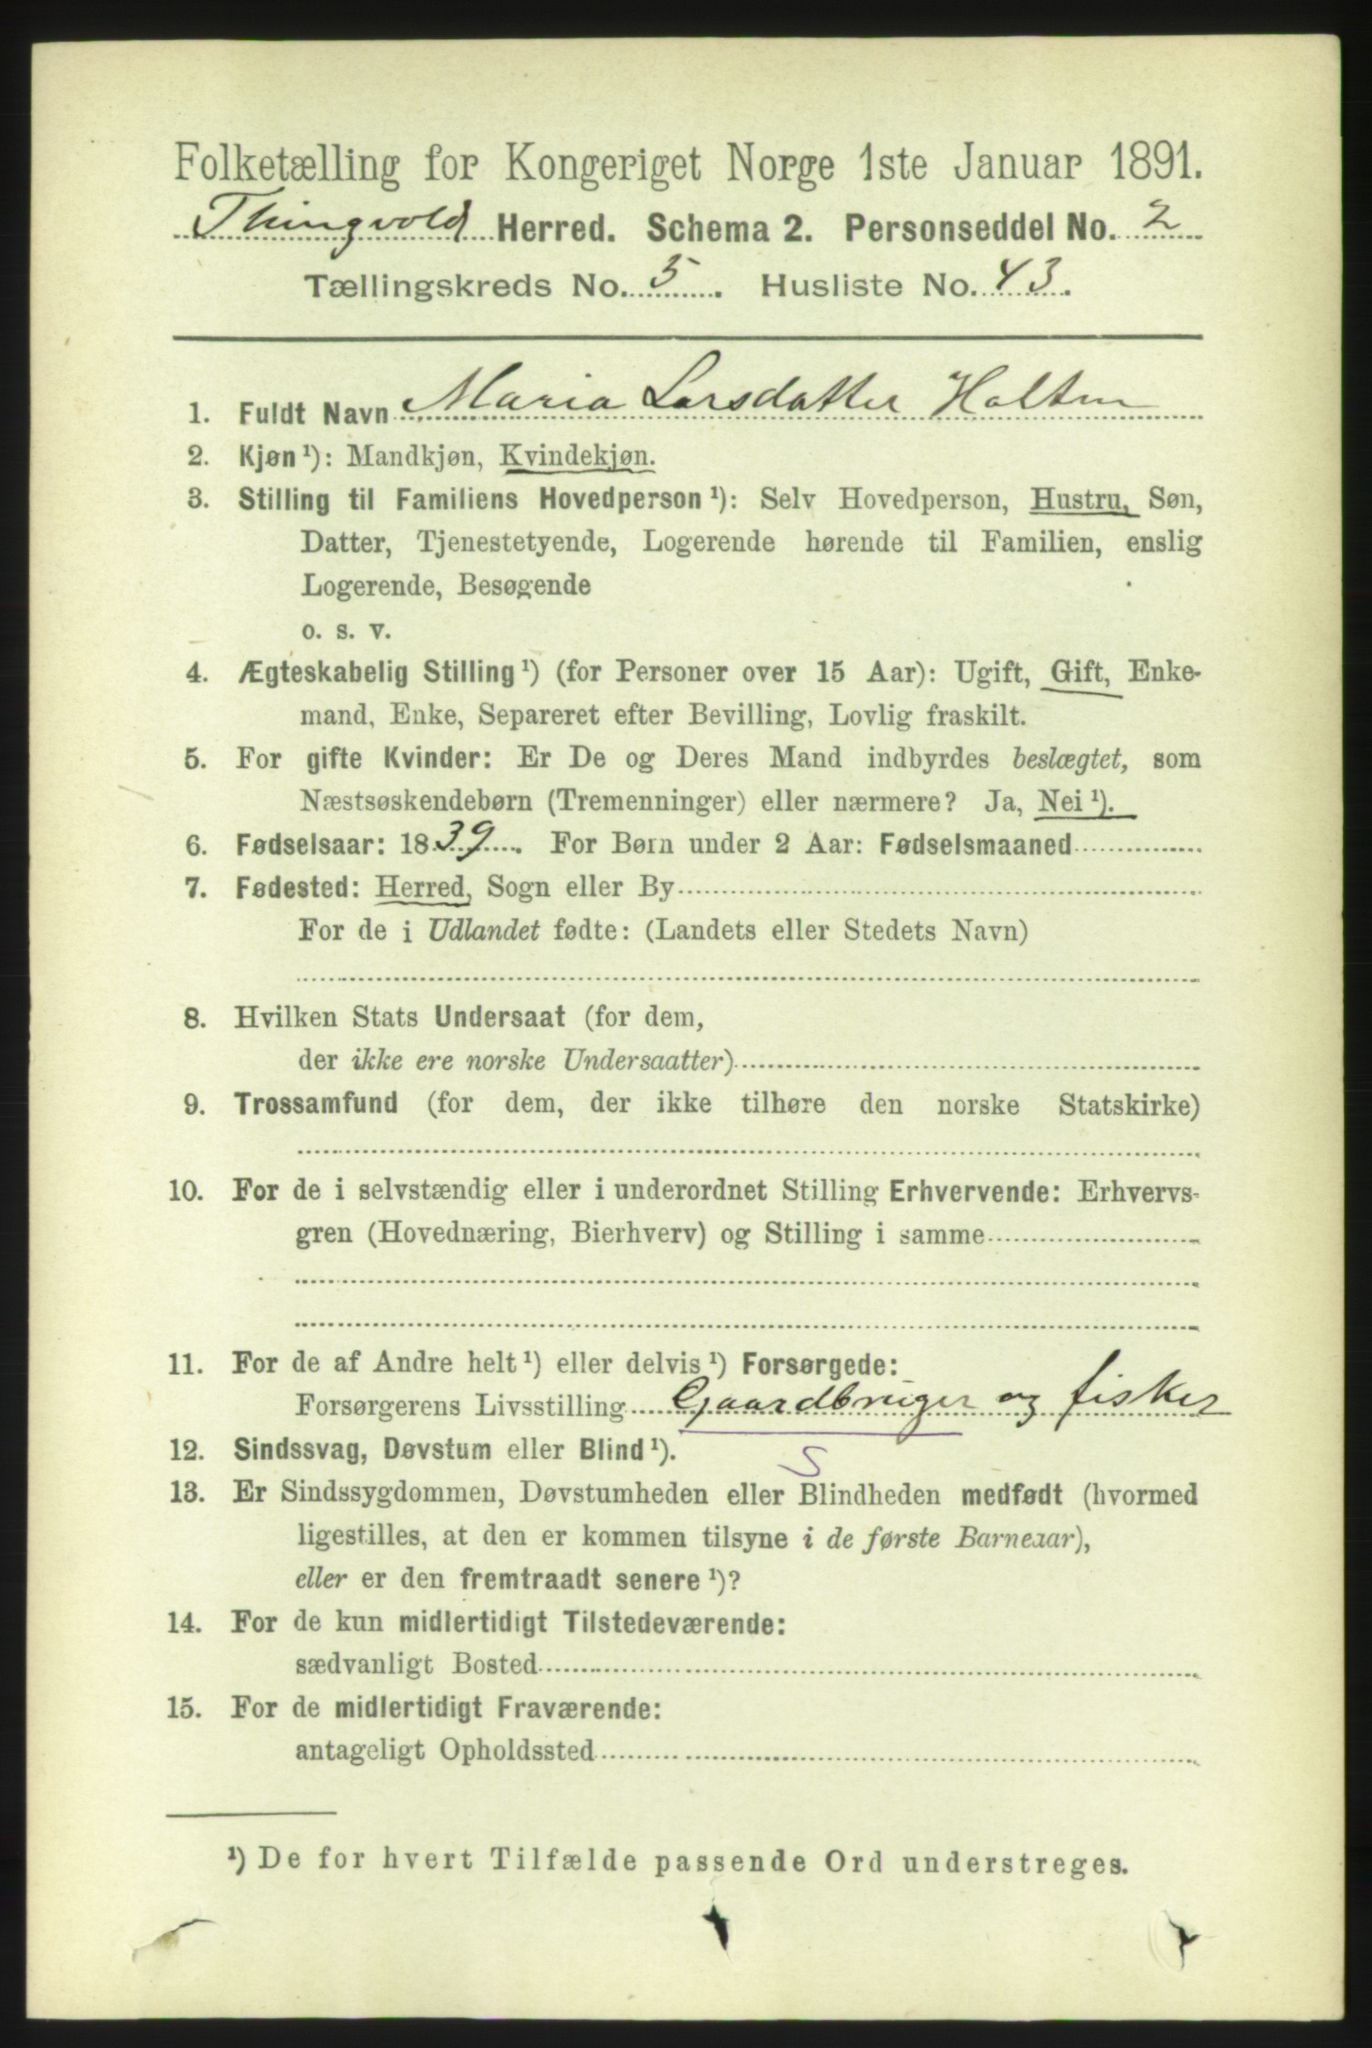 Folketælling for Kongeriget Norge 1ste Januar 1891.
Thingvold Herred. Schema 2. Personseddel No. 2
Tællingskreds No. 5. Husliste No. 43.
1. Fuldt Navn Maria Larsdatter Holten
2. Kjøn ¹): Mandkjøn, Kvindekjøn.
3. Stilling til Familiens Hovedperson ¹): Selv Hovedperson, Hustru, Søn,
Datter, Tjenestetyende, Logerende hørende til Familien, enslig
Logerende, Besøgende
o. s. v.
4. Ægteskabelig Stilling ¹) (for Personer over 15 Aar): Ugift, Gift, Enke-
mand, Enke, Separeret efter Bevilling, Lovlig fraskilt.
5. For gifte Kvinder: Er De og Deres Mand indbyrdes beslægtet, som
Næstsøskendebørn (Tremenninger) eller nærmere? Ja, Nei ¹).
6. Fødselsaar: 1839. For Børn under 2 Aar: Fødselsmaaned
7. Fødested: Herred, Sogn eller By
For de i Udlandet fødte: (Landets eller Stedets Navn)
8. Hvilken Stats Undersaat (for dem,
der ikke ere norske Undersaatter)
9. Trossamfund (for dem, der ikke tilhøre den norske Statskirke)
10. For de i selvstændig eller i underordnet Stilling Erhvervende: Erhvervs-
gren (Hovednæring, Bierhverv) og Stilling i samme
11. For de af Andre helt ¹) eller delvis ¹) Forsørgede:
Forsørgerens Livsstilling Gaardbruger og fisker
12. Sindssvag, Døvstum eller Blind ¹). S
13. Er Sindssygdommen, Døvstumheden eller Blindheden medfødt (hvormed
ligestilles, at den er kommen tilsyne i de første Barneaar),
eller er den fremtraadt senere ¹)?
14. For de kun midlertidigt Tilstedeværende:
sædvanligt Bosted
15. For de midlertidigt Fraværende:
antageligt Opholdssted
¹) De for hvert Tilfælde passende Ord understreges.